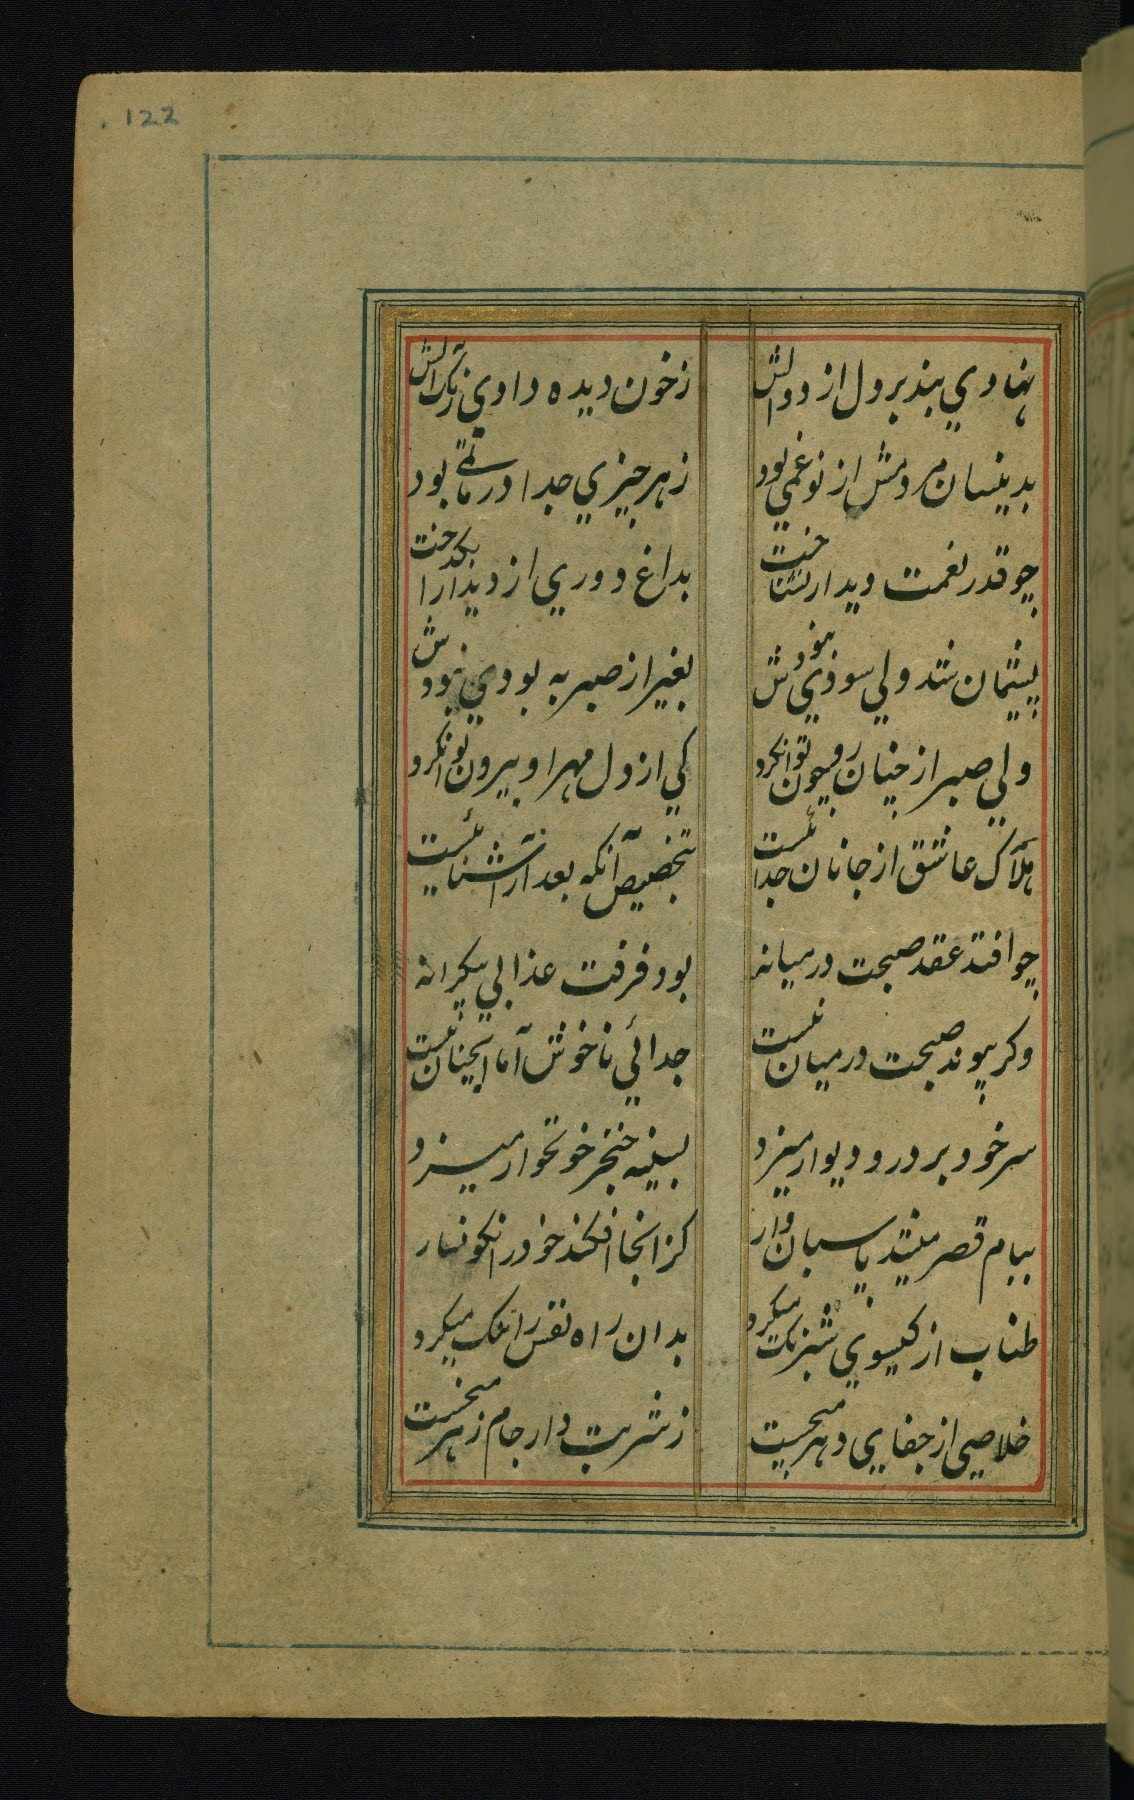 122
نهادي بند بر دل از دوالش
ز خون ديده دادي رنگ آلش
بدينسان هر دمش از نو غمي بود
ز هر چيزي جدا در ماتمي بود
چو قدر نعمت ديدار نشناخت
بداغ دوري از ديدار بگداخت
پشيمان شد ولي سودي نبودش
بغير از صبر بهبودي نبودش
ولي صبر از چنان رو چون توان کرد
کي از دل مهر او بيرون توان کرد
هلاک عاشق از جانان جدائيست
بتخصيص آنکه بعد از آشنائيست
چو افتد عقد صحبت در ميانه
بود فرقت عذابي بيکرانه
وکر پيوند صحبت در ميان نيست
جدائي ناخوش آما آنچنان نيست
سر خود بر در و ديوار ميزد
بسينه خنجر خونخوار ميزد
ببام قصر ميشد پاسبان وار
کز انجا افکند خود را نکونسار
طناب از کيسوي شبرنک ميکرد
بدان راه نفس را تنک ميکرد
خلاصي از جفاي دهر ميجست
ز شربت دار جام زهر ميجست